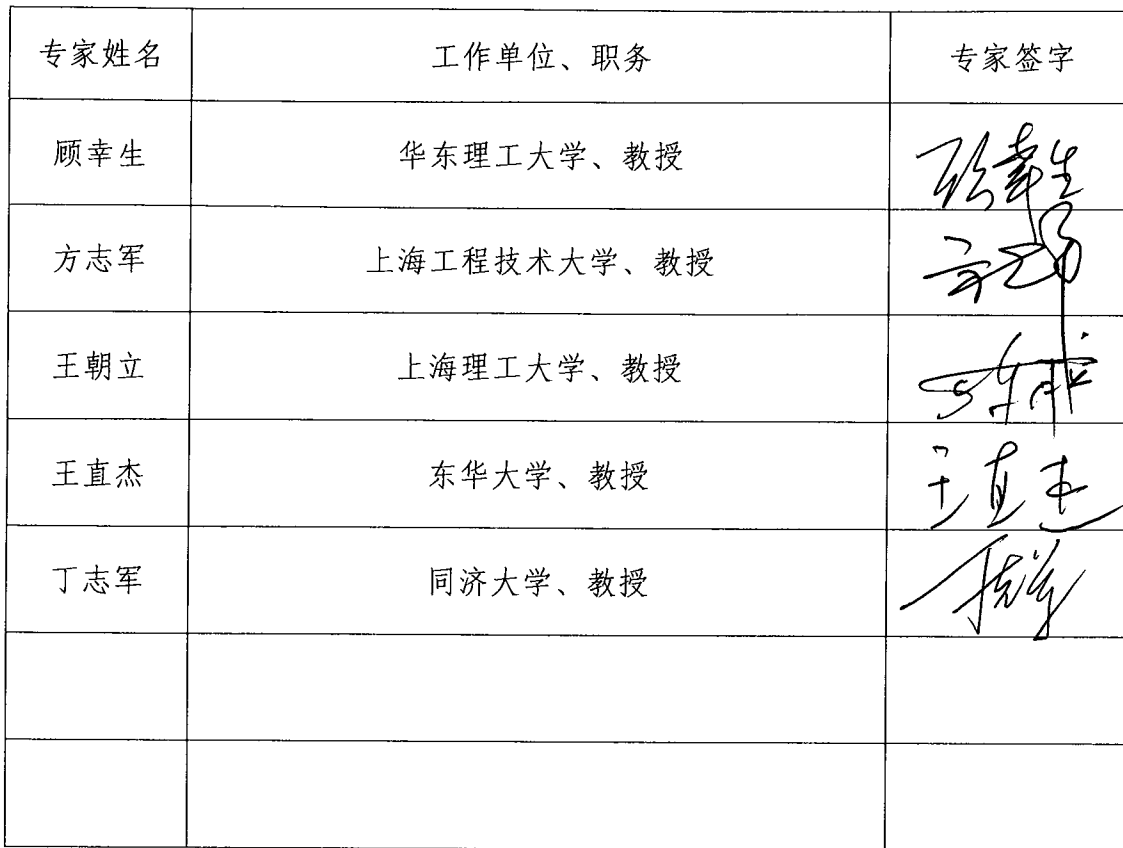 专家姓名 工作单位、职务 专家签字
顾幸生 华东理工大学、教授 顾幸生
方志军 上海工程技术大学、教授
王朝立 上海理工大学、教授
王直杰 东华大学、教授 王直杰
丁志军 同济大学、教授